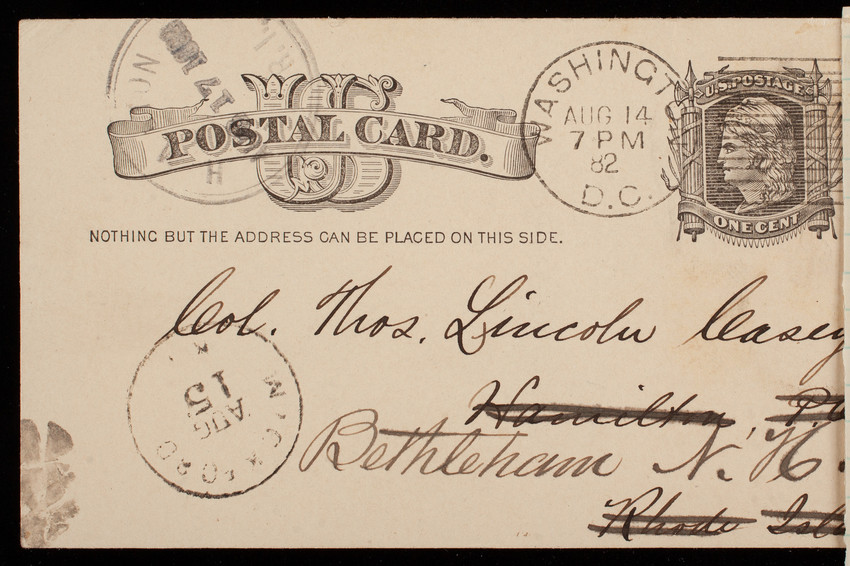 U.S.
POSTAL CARD.
NOTHING BUT THE ADDRESS CAN BE PLACED ON THIS SIDE.
WASHINGTO
AUG 14
7 PM
82
D.C.
U.S. POSTAGE
ONE CENT
17
Col. Thos. Lincoln Casey
Hamilton, P.O
Bethleham N. H.
Rhode Isl
AUG
15